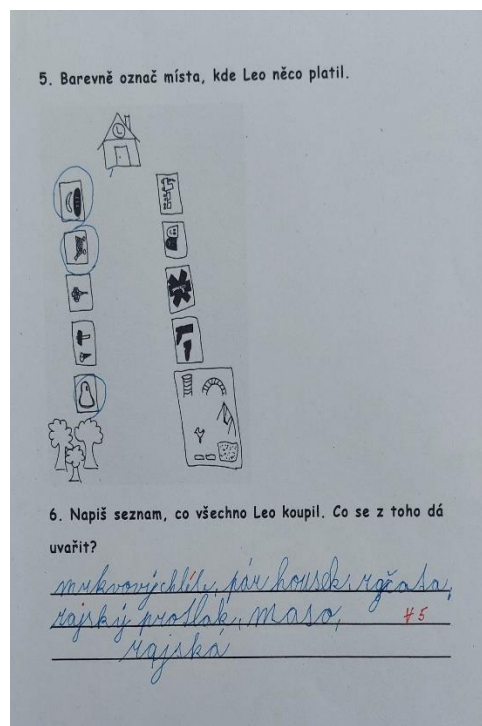 5. Barevně označ místa, kde Leo něco platil.
L
6. Napiš seznam, co všechno Leo koupil. Co se z toho dá
uvařit?
mrkvový chléb, pár housek, rajčata,
rajský protlak, maso,
rajská